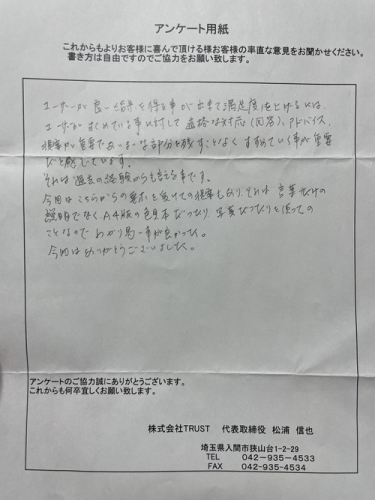 アンケート用紙
これからもよりお客様に喜んで頂ける様お客様の率直な意見をお聞かせください。
書き方は自由ですのでご協力をお願い致します。
ユーザーが良い結果を得る事が出来て満足度を上げるには、
ユーザーが求めている事に対して適格な対応(回答)、アドバイス、
提案が重要であいまいな部分を残すことなくすすめていく事が重要
だと感じています。
それは過去の経験からも言える事です。
今回はこちらからの要求を受けての提案もあり、それは言葉だけの
説明でなくA4版の色見本だったり、写真だったりを使っての
ことなのでわかり易い事が良かった。
今回はありがとうございました。
アンケートのご協力誠にありがとうございます。
これからも何卒宜しくお願い致します。
株式会社TRUST 代表取締役 松浦 信也
埼玉県入間市狭山台1-2-29
TEL 042-935-4533
FAX 042-934-4534